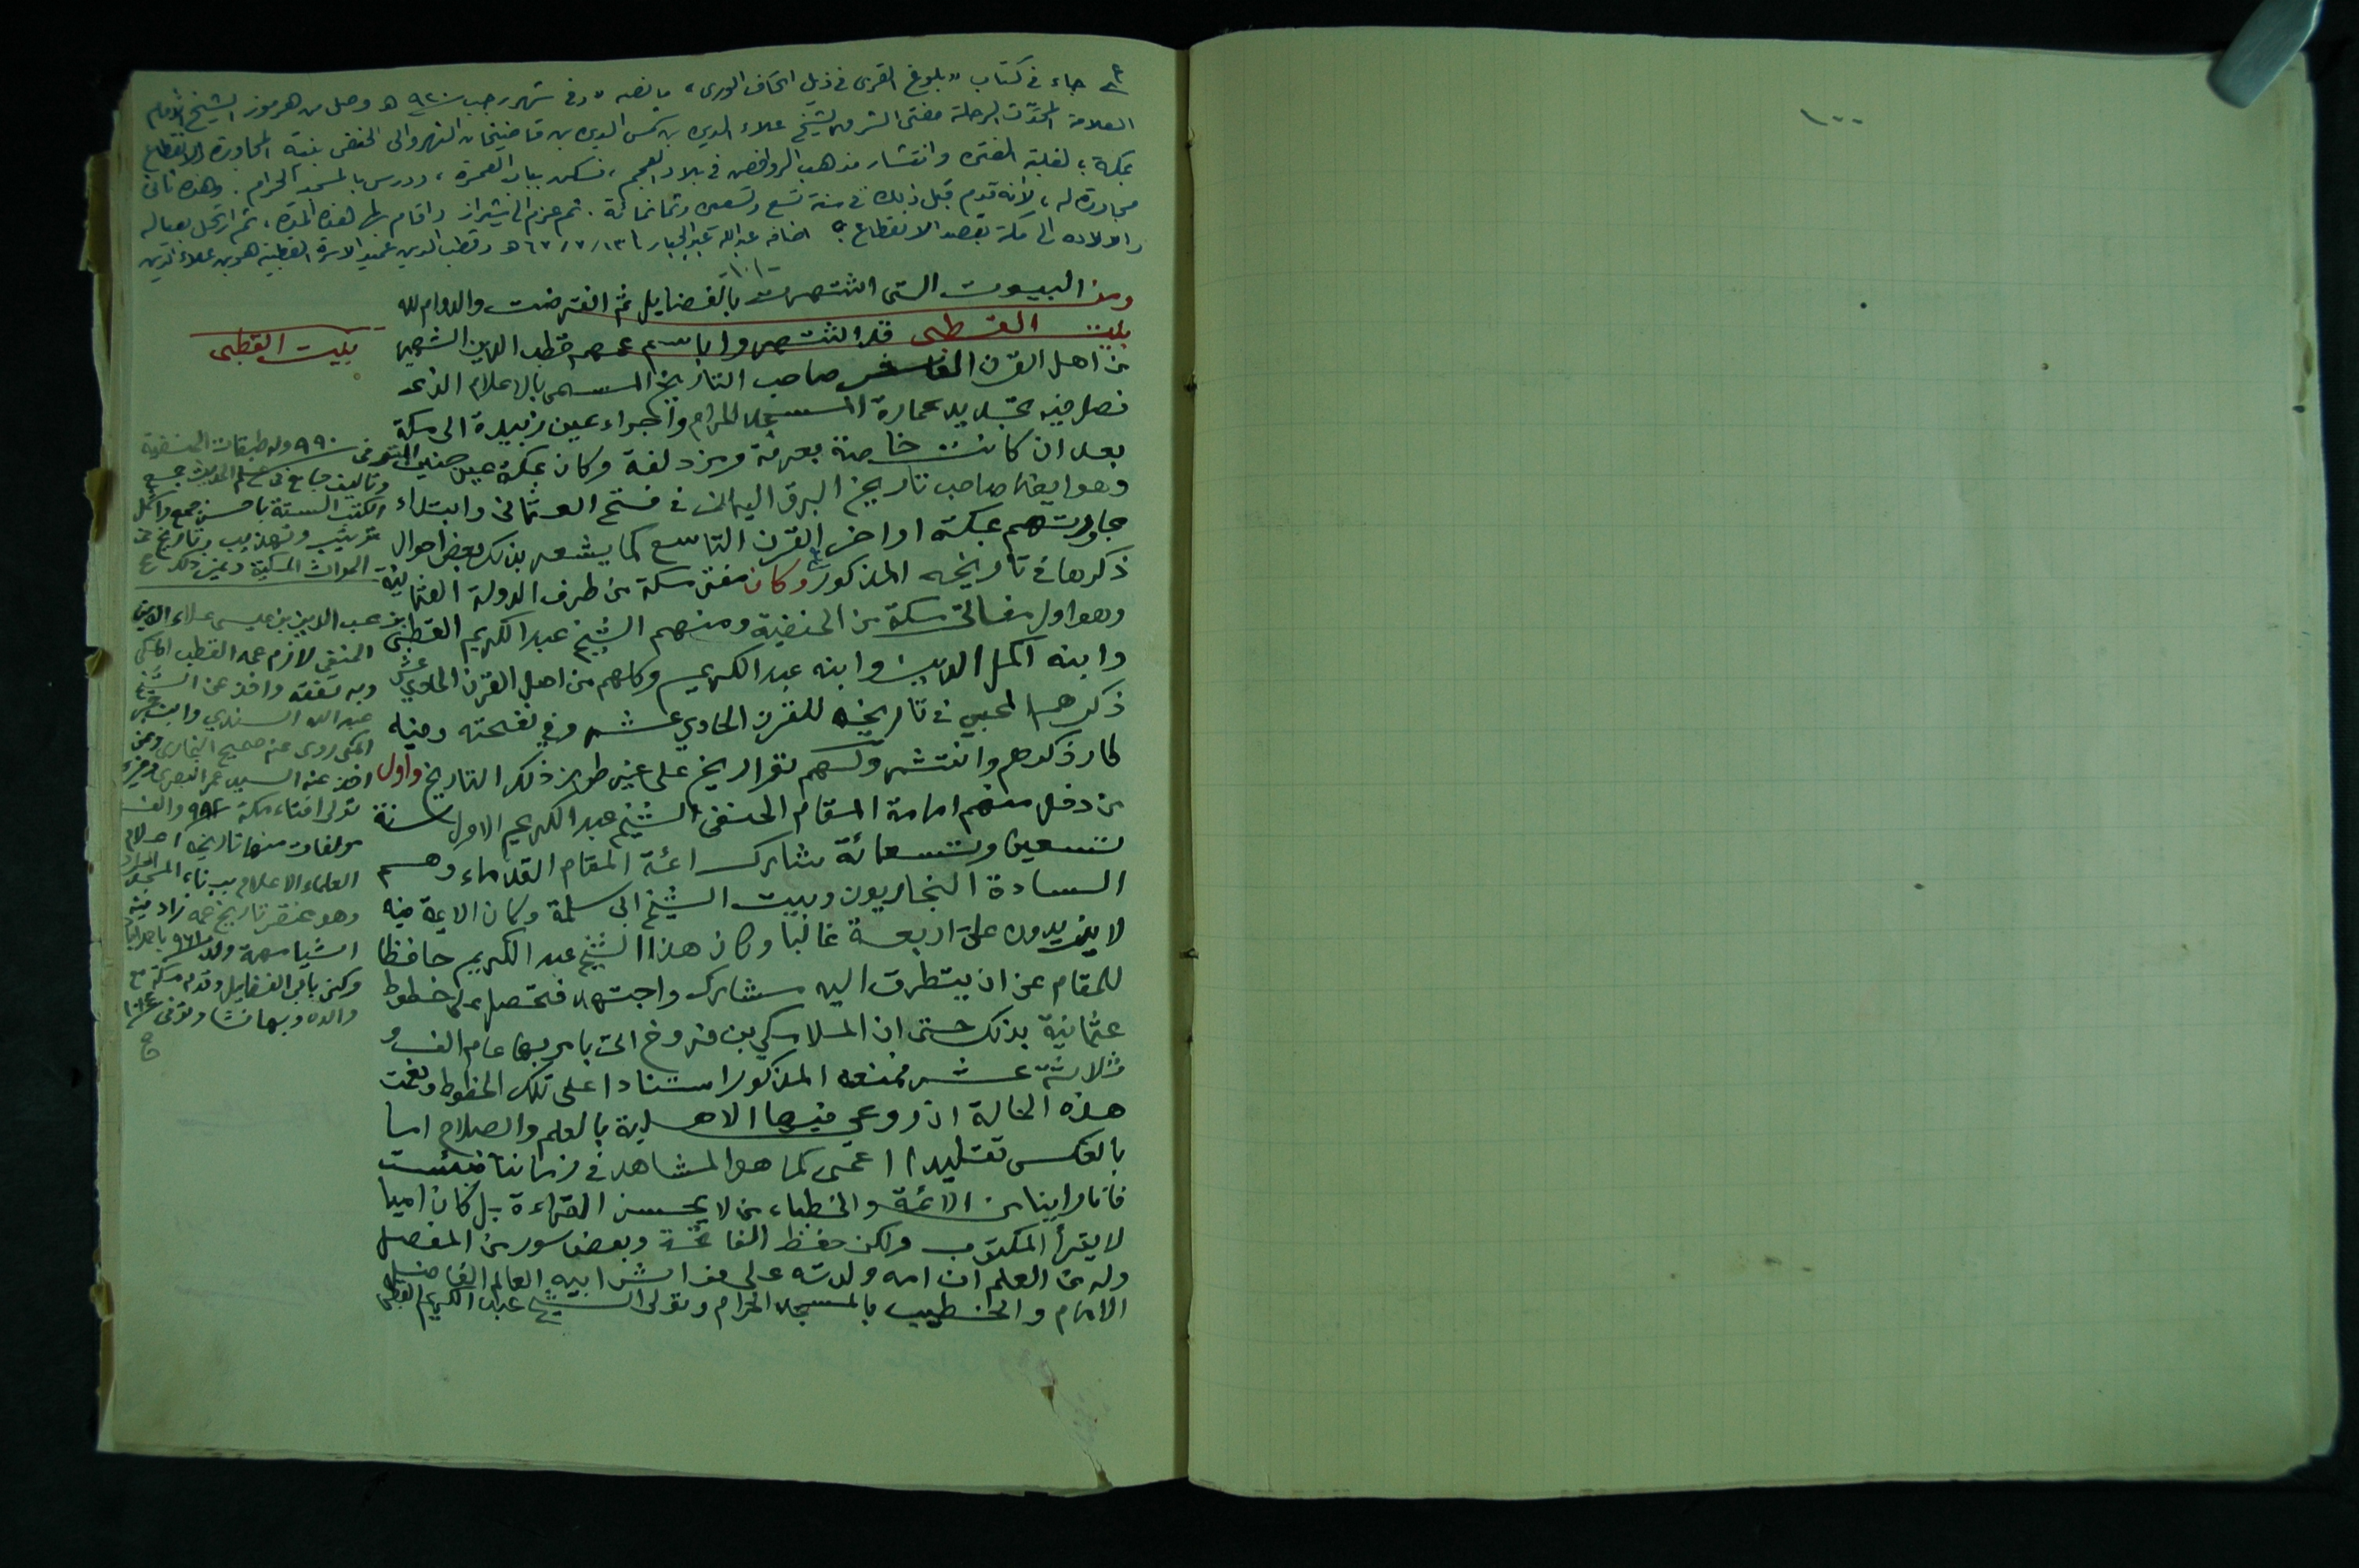 ١٠٠
جاء في كتاب «بلوغ القرى في ذيل اتحاف الورى» ما نصه «وفي شهر رجب سنة ٩٢٠ هـ وصل من هرموز الشيخ الامام
العلامة المحدث الرحلة مفتي الشرق الشيخ علاء الدين بن شمس الدين بن قاضيخان النهروالى الحنفى بنية المجاورة والانقطاع
بمكة، لغلبة الفتن وانتشار مذهب الروافض في بلاد العجم، فسكن بباب العمرة، ودرس بالمسجد الحرام. وهذه ثانى
مجاورة له، لأنه قدم قبل ذلك في سنة تسع وتسعين وثمانمائة. ثم عزم الى شيراز واقام بها هذه المدة، ثم ارتحل بعياله
واولاده الى مكة بقصد الانقطاع» اضافه عبد الله عبد الجبار ١٣/٧/٦٧ هـ وقطب الدين عميد الاسرة القطبية هو بن علاء الدين
-١٠١-
ومن البيوت التى اشتهرت بالفضايل ثم انقرضت والدوام لله
بيت القطبى قد اشتهروا باسم عمهم قطب الدين الشهير
من اهل القرن العاشر صاحب التاريخ المسمى بالاعلام الذى
فصل فيه تجديد عمارة المسجد الحرام واجراء عين زبيدة الى مكة
بعد ان كانت خاصة بعرفة ومزدلفة وكان بمكة عين حنين المتوفى ٩٩٠
وهو ايضا صاحب تاريخ البرق اليمانى في فتح العثمانى وابتداء
مجاورتهم بمكة اواخر القرن التاسع كما يشعر بذلك بعض احوال
ذكرها في تاريخه المذكور وكان مفتى مكة من طرف الدولة العثمانية
وهو اول مفاتى مكة من الحنفية ومنهم الشيخ عبد الكريم القطبى
وابنه اكمل الدين وابنه عبد الكريم وكلهم من اهل القرن الحادي عشر
ذكرهم المحبي في تاريخه للقرن الحادي عشر وفي نفحته وفيه
طار ذكرهم وانتشر ولهم تقراريخ على غير طور ذلك التاريخ واول
من دخل منهم امامة المقام الحنفى الشيخ عبد الكريم الاول سنة
تسعين وتسعمائة مشارك ائمة المقام القدماء وهم
السادة البخاريون وبيت الشيخ ابى سلمة وكان الايمة فيه
لا يزيدون على اربعة غالبا وكان هذا الشيخ عبد الكريم حافظا
للمقام عن ان يتطرق اليه مشارك واجتهد فتحصل على خطوط
عثمانية بذلك حتى ان الملا مكي بن فروخ اتى بامر بها عام الف و
ثلاثة عشر فمنعه المذكور استنادا على تلك الخطوط ونعمت
هذه الحالة ان روعي فيها الاهلية بالعلم والصلاح اما
بالعكس تقليدا اعمى كما هو المشاهد في زماننا فبئست
فانا راينا من الائمة والخطباء من لا يحسن القراءة بل كان اميا
لا يقرأ المكتوب ولكن حفظ الفاتحة وبعض سور من المفصل
وله من العلم ان امه ولدته على فراش ابيه العالم الفاضل
الامام والخطيب بالمسجد الحرام وتولى الشيخ عبد الكريم القطبى
بيت القطبى
وله طبقات الحنفية
وتاليف جامع في علم الحديث جمع
الكتب الستة باحسن جمع واكمل
ترتيب وتهذيب وتاريخ في
الحوادث المكية وغير ذلك
بن محب الدين بن عيسى علاء الدين
الحنفى لازم عمه القطب المكي
وبه تفقه واخذ عن الشيخ
عبد الله السندي وابن حجر
المكى روى عنه صحيح البخارى وعن
اخذ عنه السيد عمر البصرى وغيره
تولى افتاء مكة ٩٨٢ والف
مولفات منها تاريخه اعلام
العلماء الاعلام ببناء المسجد الحرام
وهو مختصر تاريخ عمه زاد فيه
اشيا مهمة ولد ٩٦١
وكنى بابى الفضايل وقدم مكة مع
والده وبها نشا وتوفى ١٠١٤